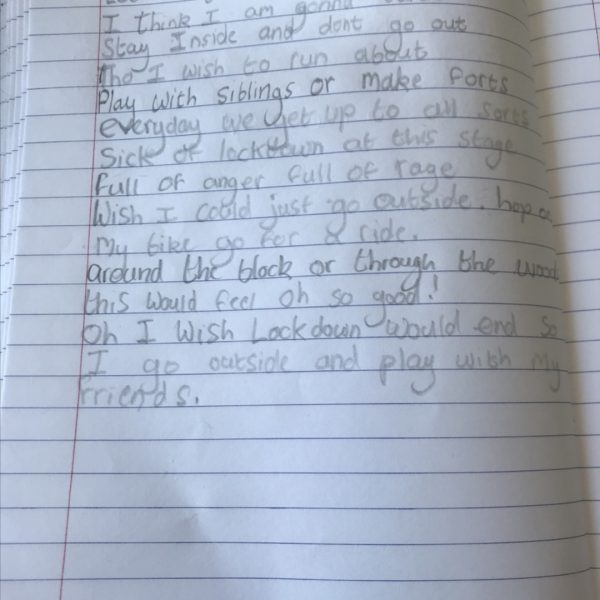 I think I am gonna
Stay Inside and dont go out
tho I wish to run about
Play with siblings or make forts
everyday we get up to all sorts
Sick of lockdown at this stage
full of anger full of rage
Wish I could just go outside. hop on
my bike go for a ride.
around the block or through the wood
this would feel oh so good!
Oh I wish Lockdown would end so
I go outside and play with my
friends.